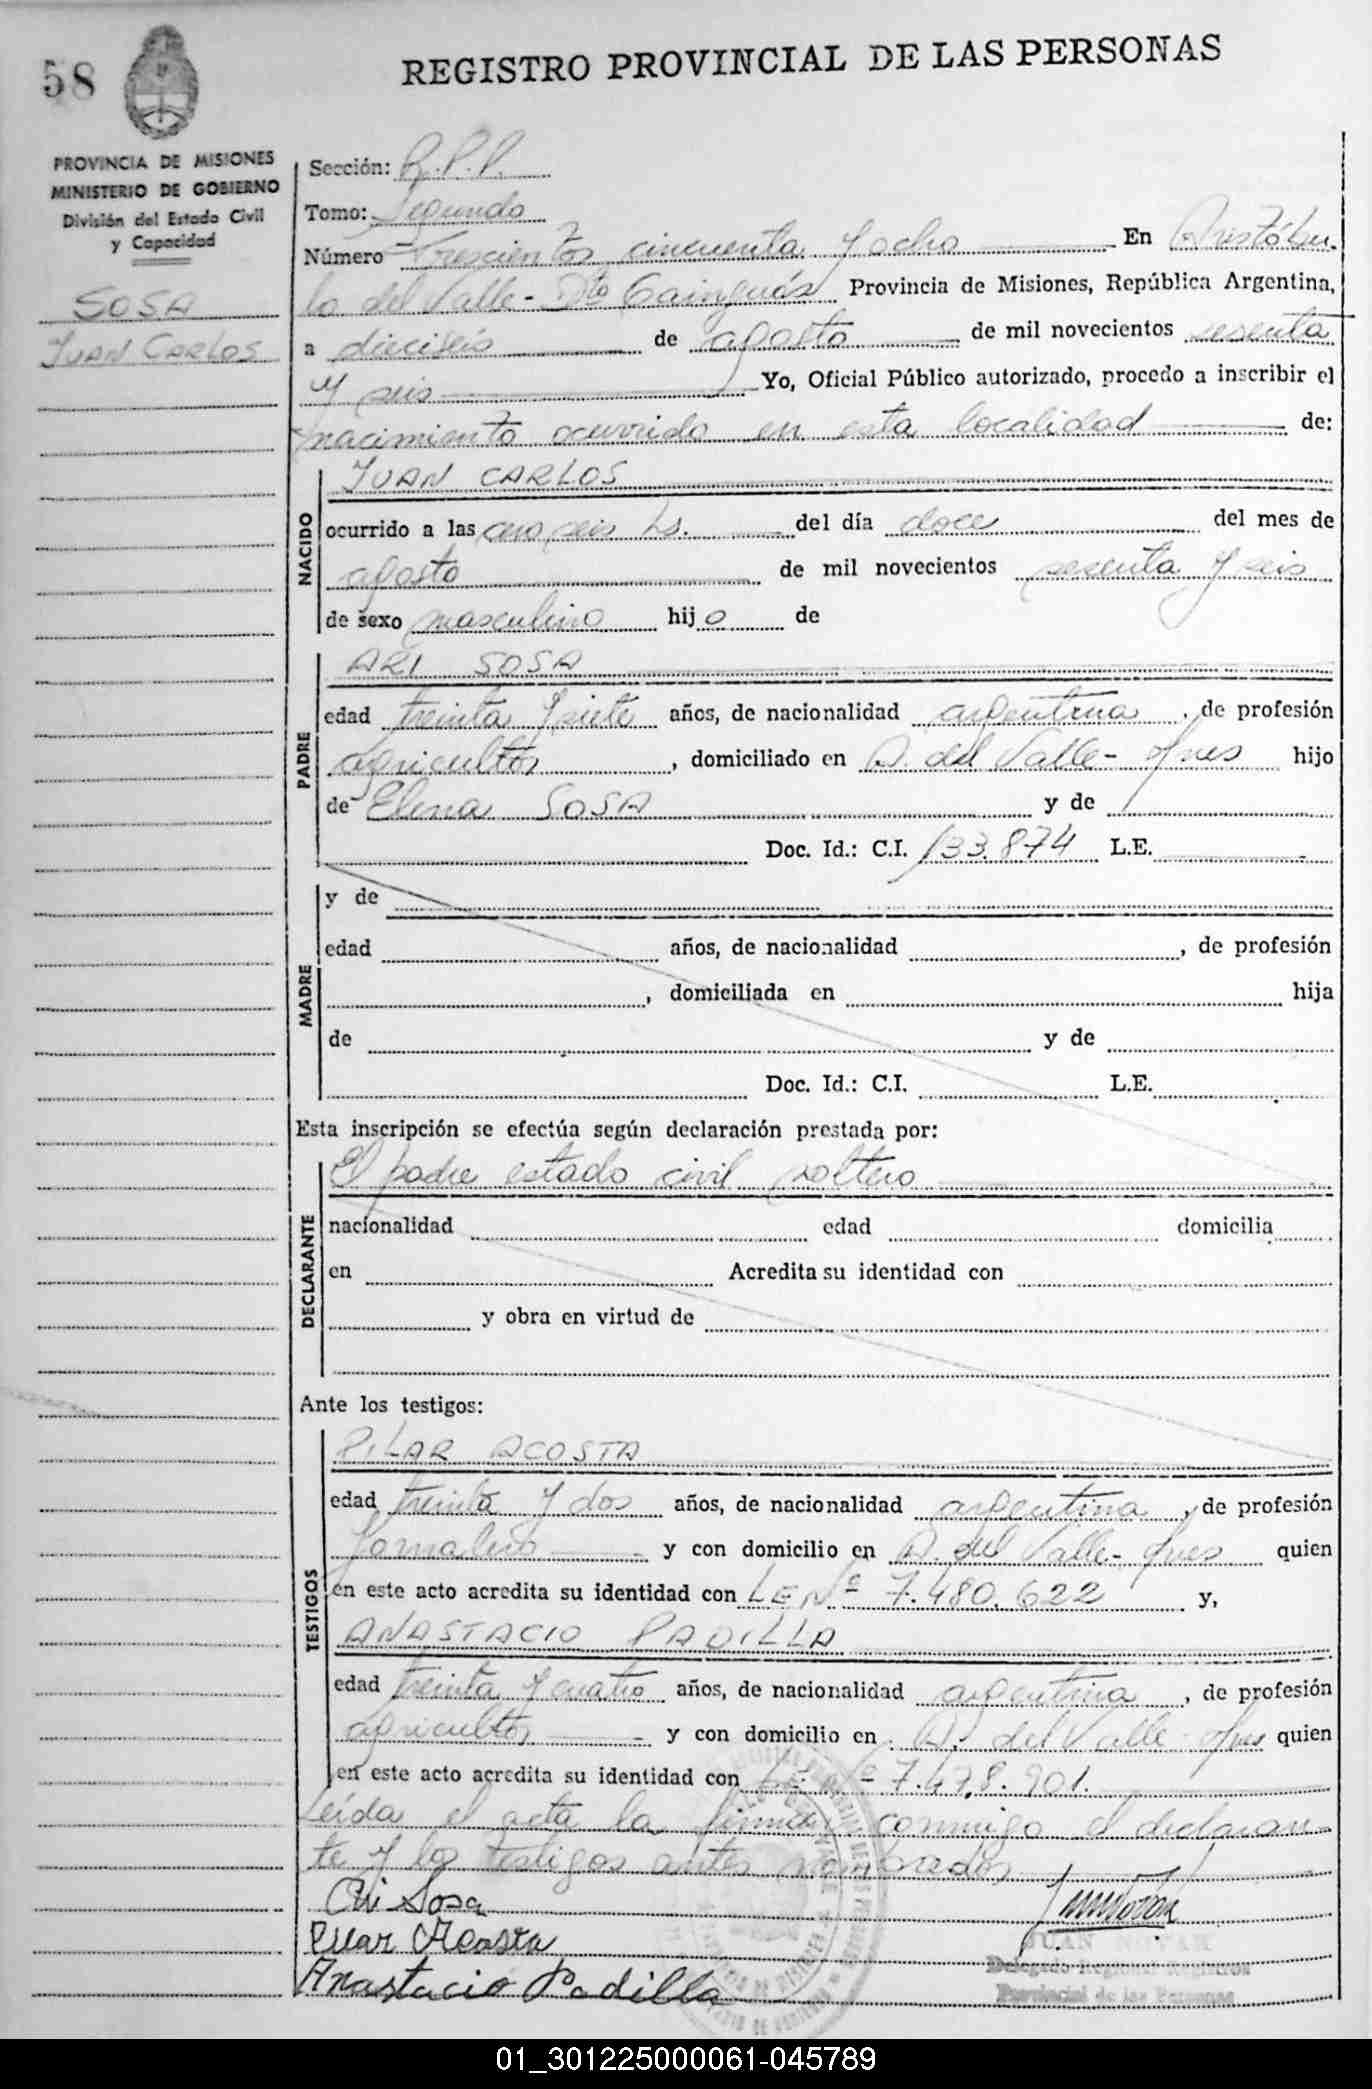 58
REGISTRO PROVINCIAL DE LAS PERSONAS
PROVINCIA DE MISIONES
MINISTERIO DE GOBIERNO
División del Estado Civil
y Capacidad
SOSA
JUAN CARLOS
Sección: R.P.P.
Tomo: Segundo
Número Trescientos cincuenta y ocho En Aristóbu-
lo del Valle - Dto Cainguás Provincia de Misiones, República Argentina,
a dieciséis de agosto de mil novecientos sesenta
y seis Yo, Oficial Público autorizado, procedo a inscribir el
nacimiento ocurrido en esta localidad de:
NACIDO
JUAN CARLOS
ocurrido a las cero seis hs. del día doce del mes de
agosto de mil novecientos sesenta y seis
de sexo masculino hijo de
PADRE
ARI SOSA
edad treinta y siete años, de nacionalidad argentina, de profesión
agricultor, domiciliado en A. del Valle - Mnes hijo
de Elena SOSA y de
Doc. Id.: C.I. 133.874 L.E.
MADRE
y de
edad años, de nacionalidad , de profesión
, domiciliada en hija
de y de
Doc. Id.: C.I. L.E.
Esta inscripción se efectúa según declaración prestada por:
DECLARANTE
El padre estado civil soltero
nacionalidad edad domicilia
en Acredita su identidad con
y obra en virtud de
Ante los testigos:
TESTIGOS
PILAR ACOSTA
edad treinta y dos años, de nacionalidad argentina, de profesión
Jornalero y con domicilio en A. del Valle - Mnes quien
en este acto acredita su identidad con LE Nº 7.480.622 y,
ANASTACIO PADILLA
edad treinta y cuatro años, de nacionalidad argentina, de profesión
agricultor y con domicilio en A. del Valle Mnes quien
en este acto acredita su identidad con L.E. nº 7.478.901.
Leída el acta la firman conmigo el declaran-
te y los testigos antes nombrados
Ari Sosa
Pilar Acosta
Anastacio Padilla
JUAN NOVAK
Delegado Regional Registro
Provincial de las Personas
01_301225000061-045789